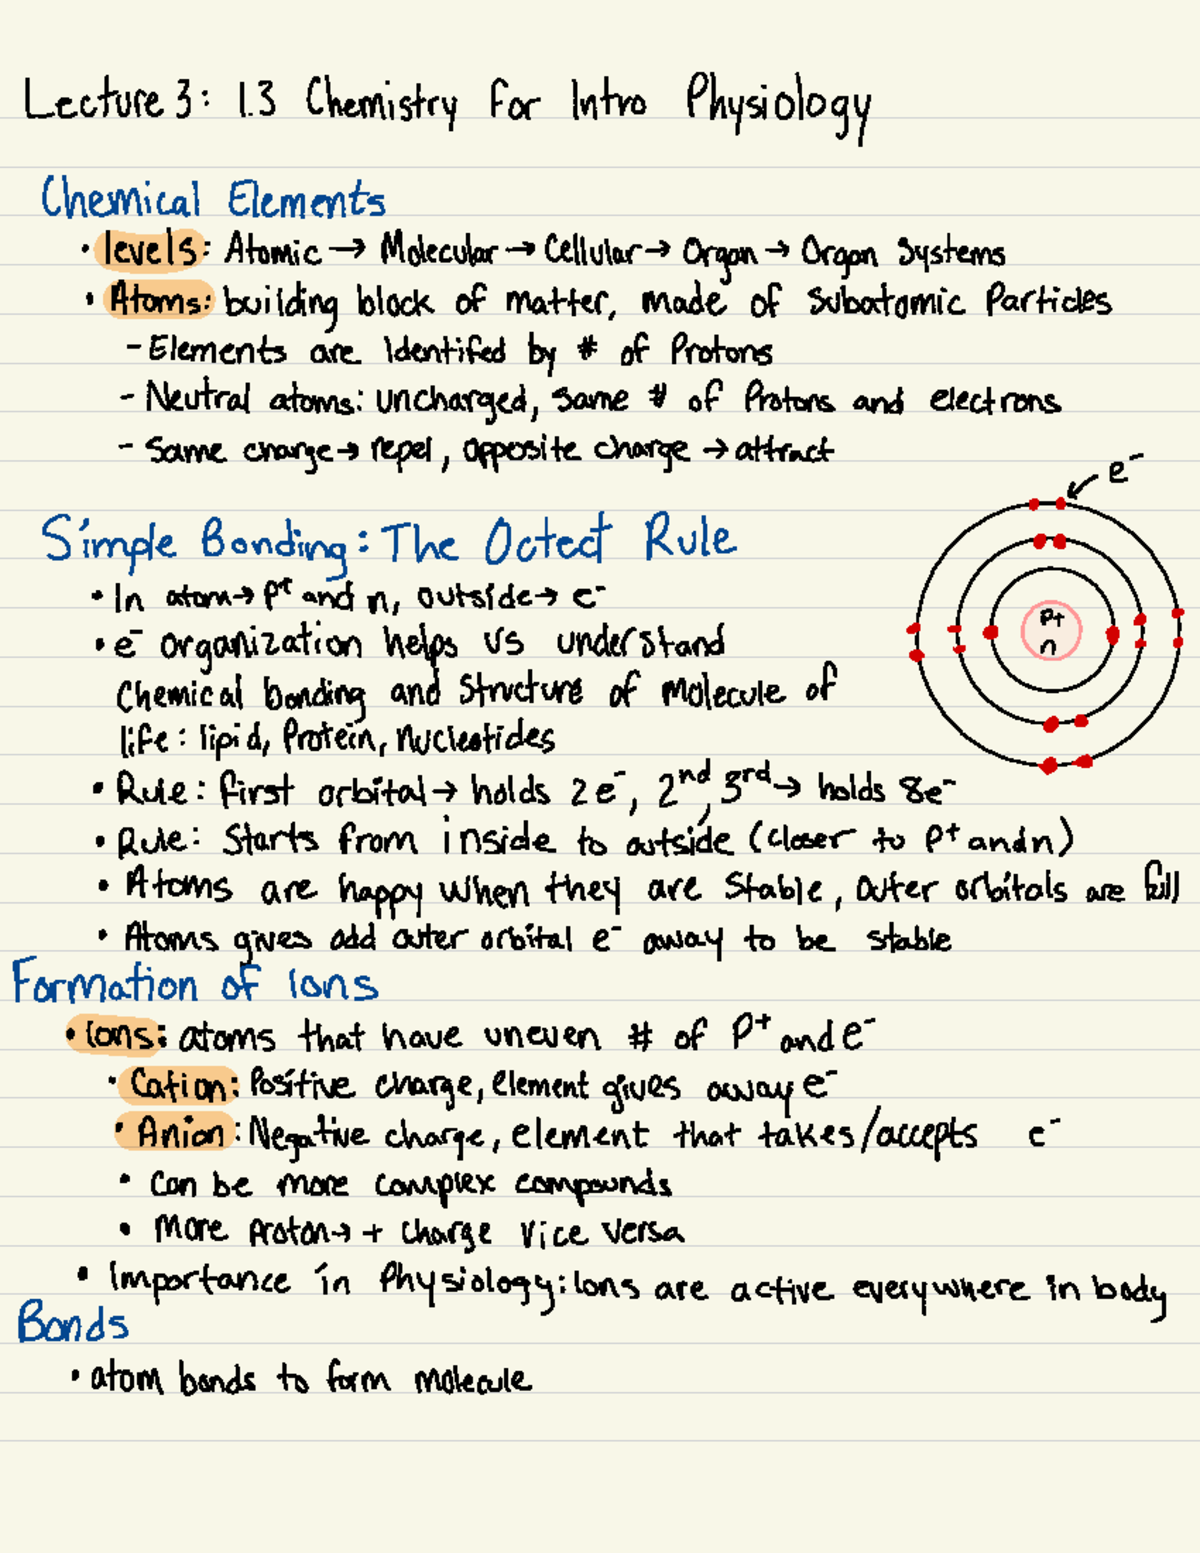 Lecture 3: 1.3 Chemistry for Intro Physiology
Chemical Elements
• levels: Atomic → Molecular → Cellular → Organ → Organ Systems
• Atoms: building block of matter, made of Subatomic Particles
- Elements are Identifed by # of Protons
- Neutral atoms: uncharged, same # of Protons and electrons
- Same charge → repel, opposite charge → attract
e⁻
Simple Bonding: The Octect Rule
• In atom → P⁺ and n, outside → e⁻
P+
n
• e⁻ organization helps us understand
Chemical bonding and Structure of Molecule of
life: lipid, Protein, Nucleotides
• Rule: first orbital → holds 2e⁻, 2nd, 3rd → holds 8e⁻
• Rule: Starts from inside to outside (closer to P⁺ and n)
• Atoms are happy when they are Stable, outer orbitals are full
• Atoms gives odd outer orbital e⁻ away to be stable
Formation of Ions
• Ions: atoms that have uneven # of P⁺ and e⁻
• Cation: Positive charge, element gives away e⁻
• Anion: Negative charge, element that takes/accepts e⁻
• Can be more complex compounds
• More Proton → + Charge Vice Versa
• Importance in Physiology: Ions are active everywhere in body
Bonds
• atom bonds to form molecule